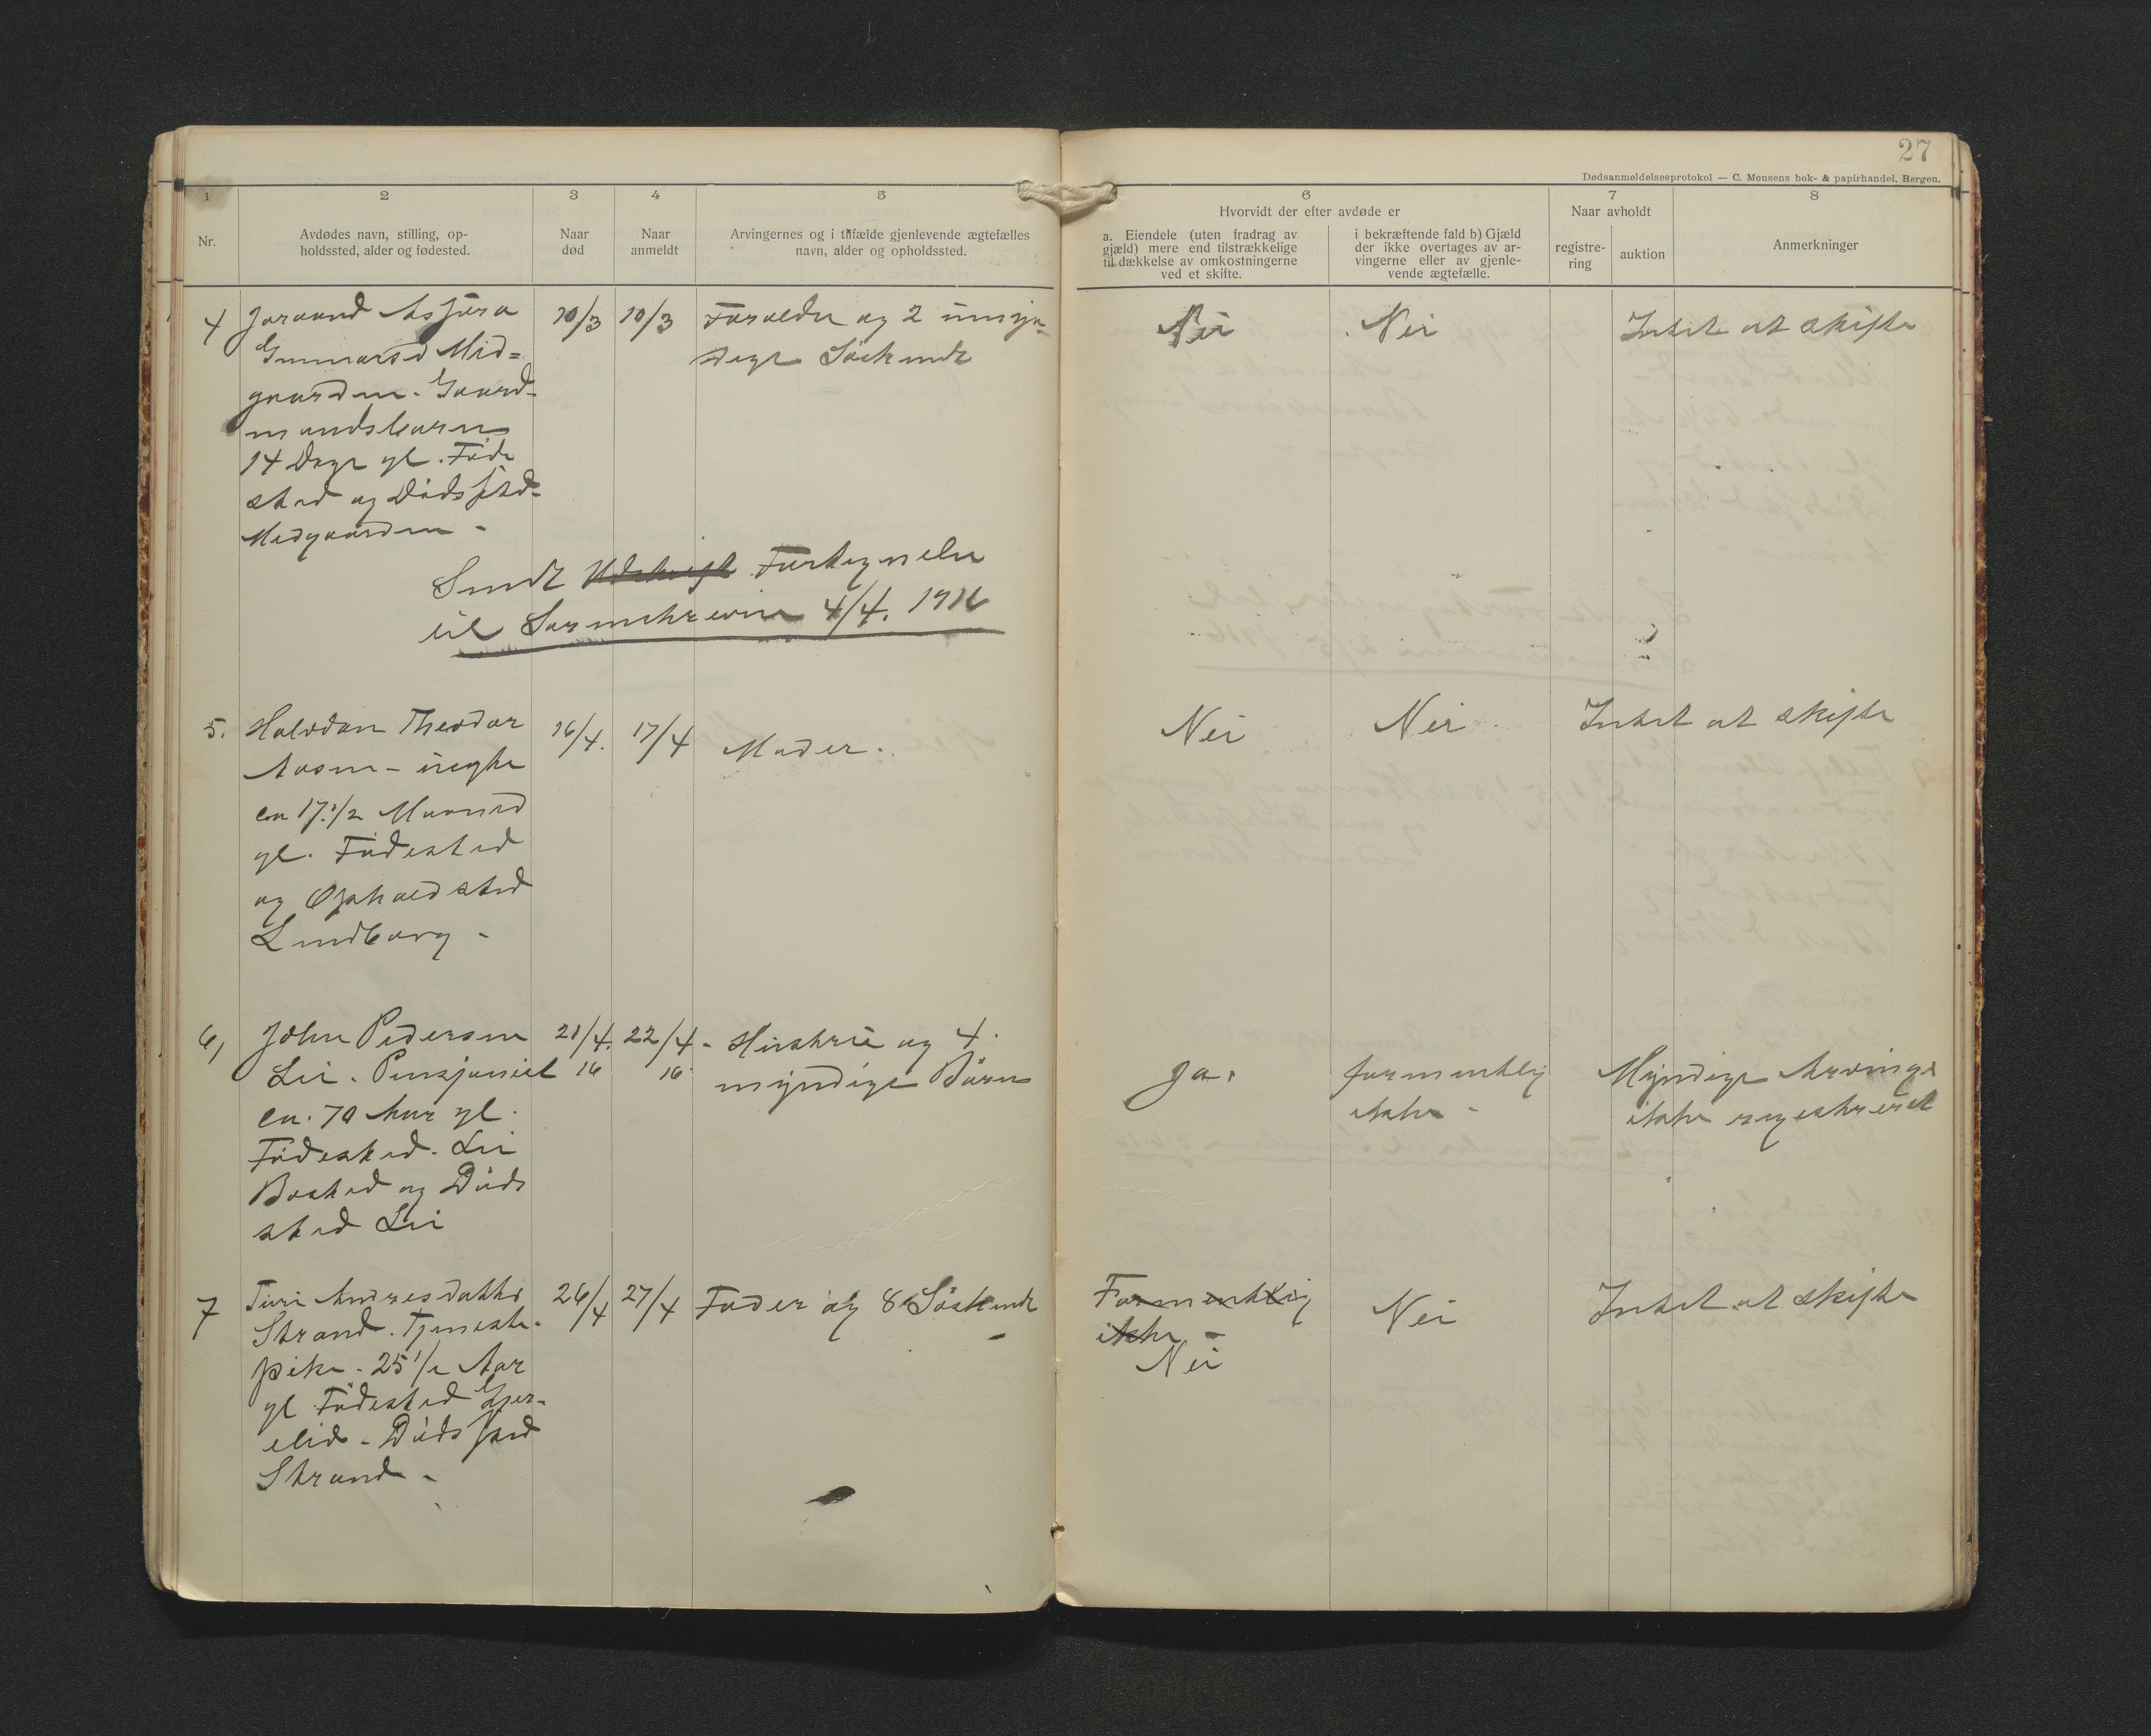 27
Dødsanmeldelsesprotokol — C. Monsens bok- & papirhandel, Bergen.
1
2
3
4
5
6
7
8
Nr.
Avdødes navn, stilling, op-
holdssted, alder og fødested.
Naar
død
Naar
anmeldt
Arvingernes og i tilfælde gjenlevende ægtefælles
navn, alder og opholdssted.
Hvorvidt der efter avdøde er
a. Eiendele (uten fradrag av
gjæld) mere end tilstrækkelige
til dækkelse av omkostningerne
ved et skifte.
i bekræftende fald b) Gjæld
der ikke overtages av ar-
vingerne eller av gjenle-
vende ægtefælle.
Naar avholdt
registre-
ring
auktion
Anmerkninger
4
Gunnarsd Mid=
gaarden. Gaard-
mandsbarn
14 Dage gl. Føde
sted og Dødssted-
Midgaarden -
10/3
10/3
Forældre og 2 umyn-
dige Søskende
Nei
Nei
Intet at skifte
Sendt Fortegnelse
til Sorenskriveren 4/4. 1916
5.
Halvdan Theodor
Aasen - ca 17 1/2 Maaned
gl. Fødested
og Opholdsted
Lundborg -
16/4.
17/4
Moder.
Nei
Nei
Intet at skifte
6,
John Pedersen
Lii. Pensjonist
ca. 70 Aar gl.
Fødested. Lii
Bosted og Døds
sted Lii
21/4.
16
22/4 -
16
Hustru og 4
myndige Børn
Ja.
formentlig
ikke -
Myndige Arvinge
ikke registreret
7
Turi Andresdatter
Strand. Tjeneste-
pike. 25 1/2 Aar
gl Fødested Gjer-
elid - Dødssted
Strand -
26/4
27/4
Fader og 8 Søskende
-
Formentlig
ikke -
Nei
Nei
Intet at skifte